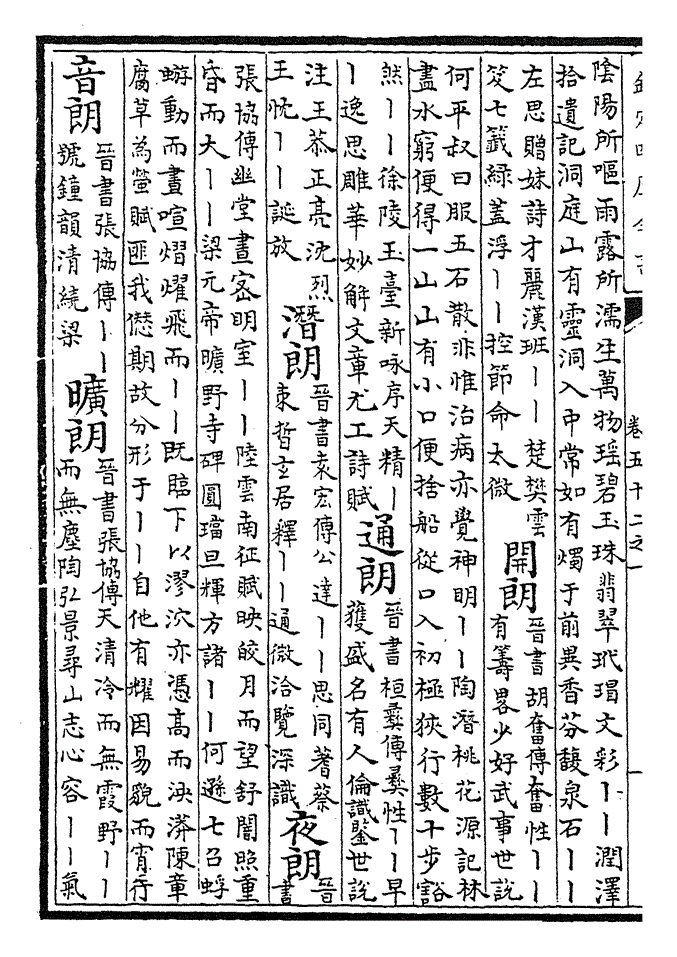 卷五十二之一
一
陰陽所嘔雨露所濡生萬物瑶碧玉珠翡翠玳瑁文彩丨丨潤澤
拾遺記洞庭山有靈洞入中常如有燭于前異香芬馥泉石丨丨
左思贈妹詩才麗漢班丨丨楚樊雲
笈七籤綠蓋浮丨丨控節命太微
開朗
晉書胡奮傳奮性丨丨
有籌畧少好武事世説
何平叔曰服五石散非惟治病亦覺神明丨丨陶潛桃花源記林
盡水窮便得一山山有小口便捨船從口入初極狹行數十步豁
然丨丨徐陵玉臺新咏序天精丨
丨逸思雕華妙解文章尤工詩賦
通朗
晉書桓彝傳彝性丨丨早
獲盛名有人倫識鑒世説
注王恭正亮沈烈
王忱丨丨誕放
潛朗
晉書袁宏傳公達丨丨思同蓍蔡
束晳玄居釋丨丨通微洽覽深識
夜朗
晉
書
張協傳幽堂晝宻明室丨丨陸雲南征賦映皎月而望舒闇照重
昏而大丨丨梁元帝曠野寺碑圓璫旦輝方諸丨丨何遜七召蜉
蝣動而晝喧熠燿飛而丨丨既臨下以漻泬亦憑高而泱漭陳章
腐草為螢賦匪我愆期故分形于丨丨自他有耀因易貌而宵行
音朗
晉書張協傳丨丨
號鐘韻清繞梁
曠朗
晉書張協傳天清泠而無霞野丨丨
而無塵陶弘景尋山志心容丨丨氣